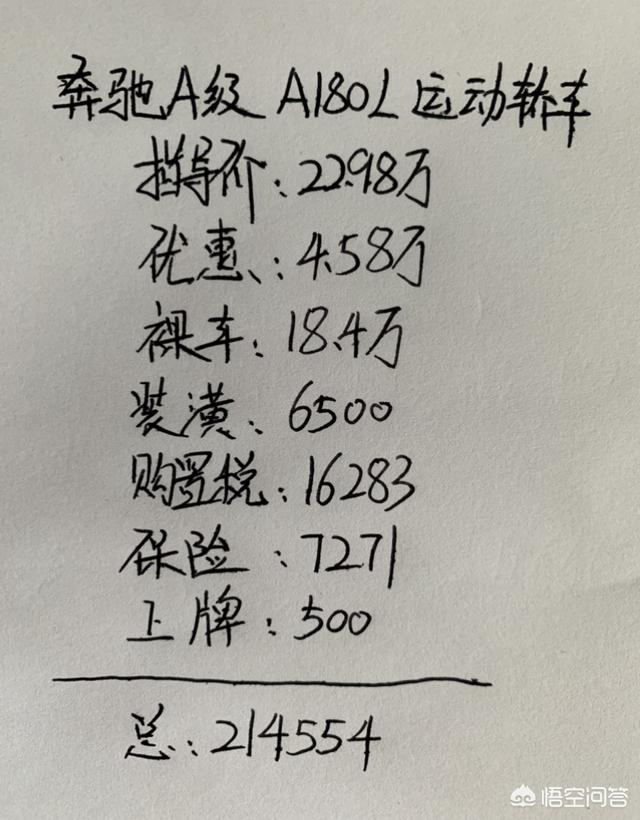 奔驰A级 A180L 运动轿车
指导价:22.98万
优惠:4.58万
裸车:18.4万
装潢:6500
购置税:16283
保险:7271
上牌:500
总:214554
悟空问答